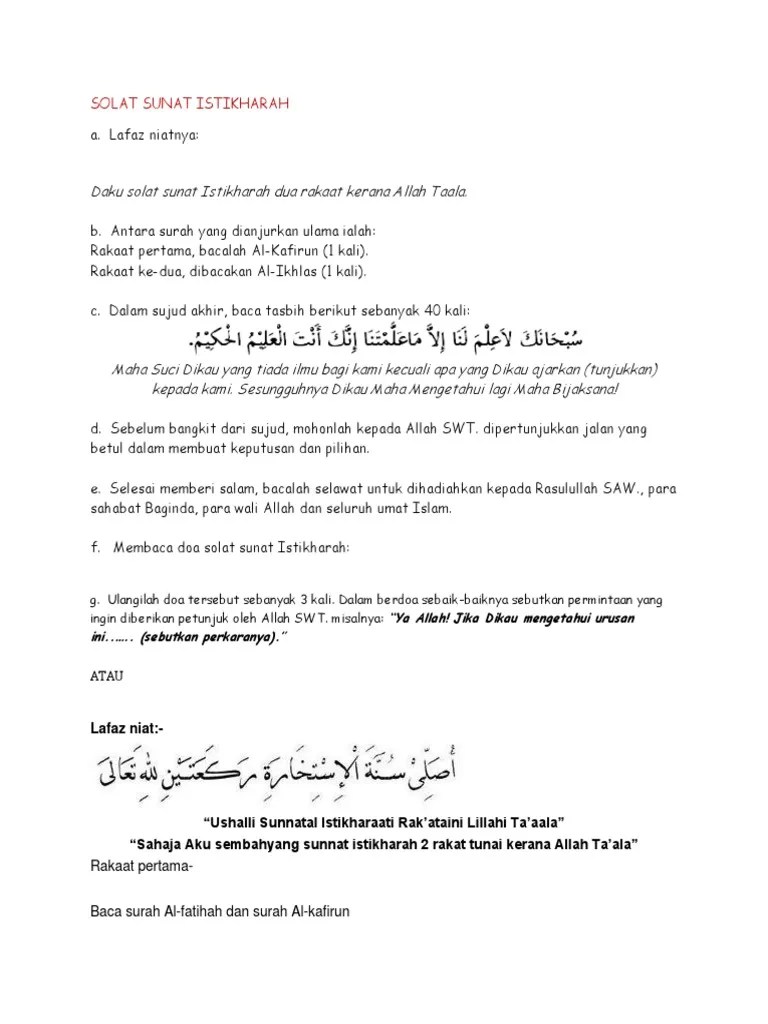 SOLAT SUNAT ISTIKHARAH
a. Lafaz niatnya:
Daku solat sunat Istikharah dua rakaat kerana Allah Taala.
b. Antara surah yang dianjurkan ulama ialah:
Rakaat pertama, bacalah Al-Kafirun (1 kali).
Rakaat ke-dua, dibacakan Al-Ikhlas (1 kali).
c. Dalam sujud akhir, baca tasbih berikut sebanyak 40 kali:
سُبْحَانَكَ لاَعِلْمَ لَنَا إِلاَّ مَاعَلَّمْتَنَا إِنَّكَ أَنْتَ الْعَلِيْمُ الْحَكِيْمُ.
Maha Suci Dikau yang tiada ilmu bagi kami kecuali apa yang Dikau ajarkan (tunjukkan)
kepada kami. Sesungguhnya Dikau Maha Mengetahui lagi Maha Bijaksana!
d. Sebelum bangkit dari sujud, mohonlah kepada Allah SWT. dipertunjukkan jalan yang
betul dalam membuat keputusan dan pilihan.
e. Selesai memberi salam, bacalah selawat untuk dihadiahkan kepada Rasulullah SAW., para
sahabat Baginda, para wali Allah dan seluruh umat Islam.
f. Membaca doa solat sunat Istikharah:
g. Ulangilah doa tersebut sebanyak 3 kali. Dalam berdoa sebaik-baiknya sebutkan permintaan yang
ingin diberikan petunjuk oleh Allah SWT. misalnya: "Ya Allah! Jika Dikau mengetahui urusan
ini……. (sebutkan perkaranya)."
ATAU
Lafaz niat:-
أُصَلِّيْ سُنَّةَ اْلإِسْتِخَارَةِ رَكْعَتَيْنِ لِلَّهِ تَعَالَىَ
“Ushalli Sunnatal Istikharaati Rak’ataini Lillahi Ta’aala”
“Sahaja Aku sembahyang sunnat istikharah 2 rakat tunai kerana Allah Ta’ala”
Rakaat pertama-
Baca surah Al-fatihah dan surah Al-kafirun